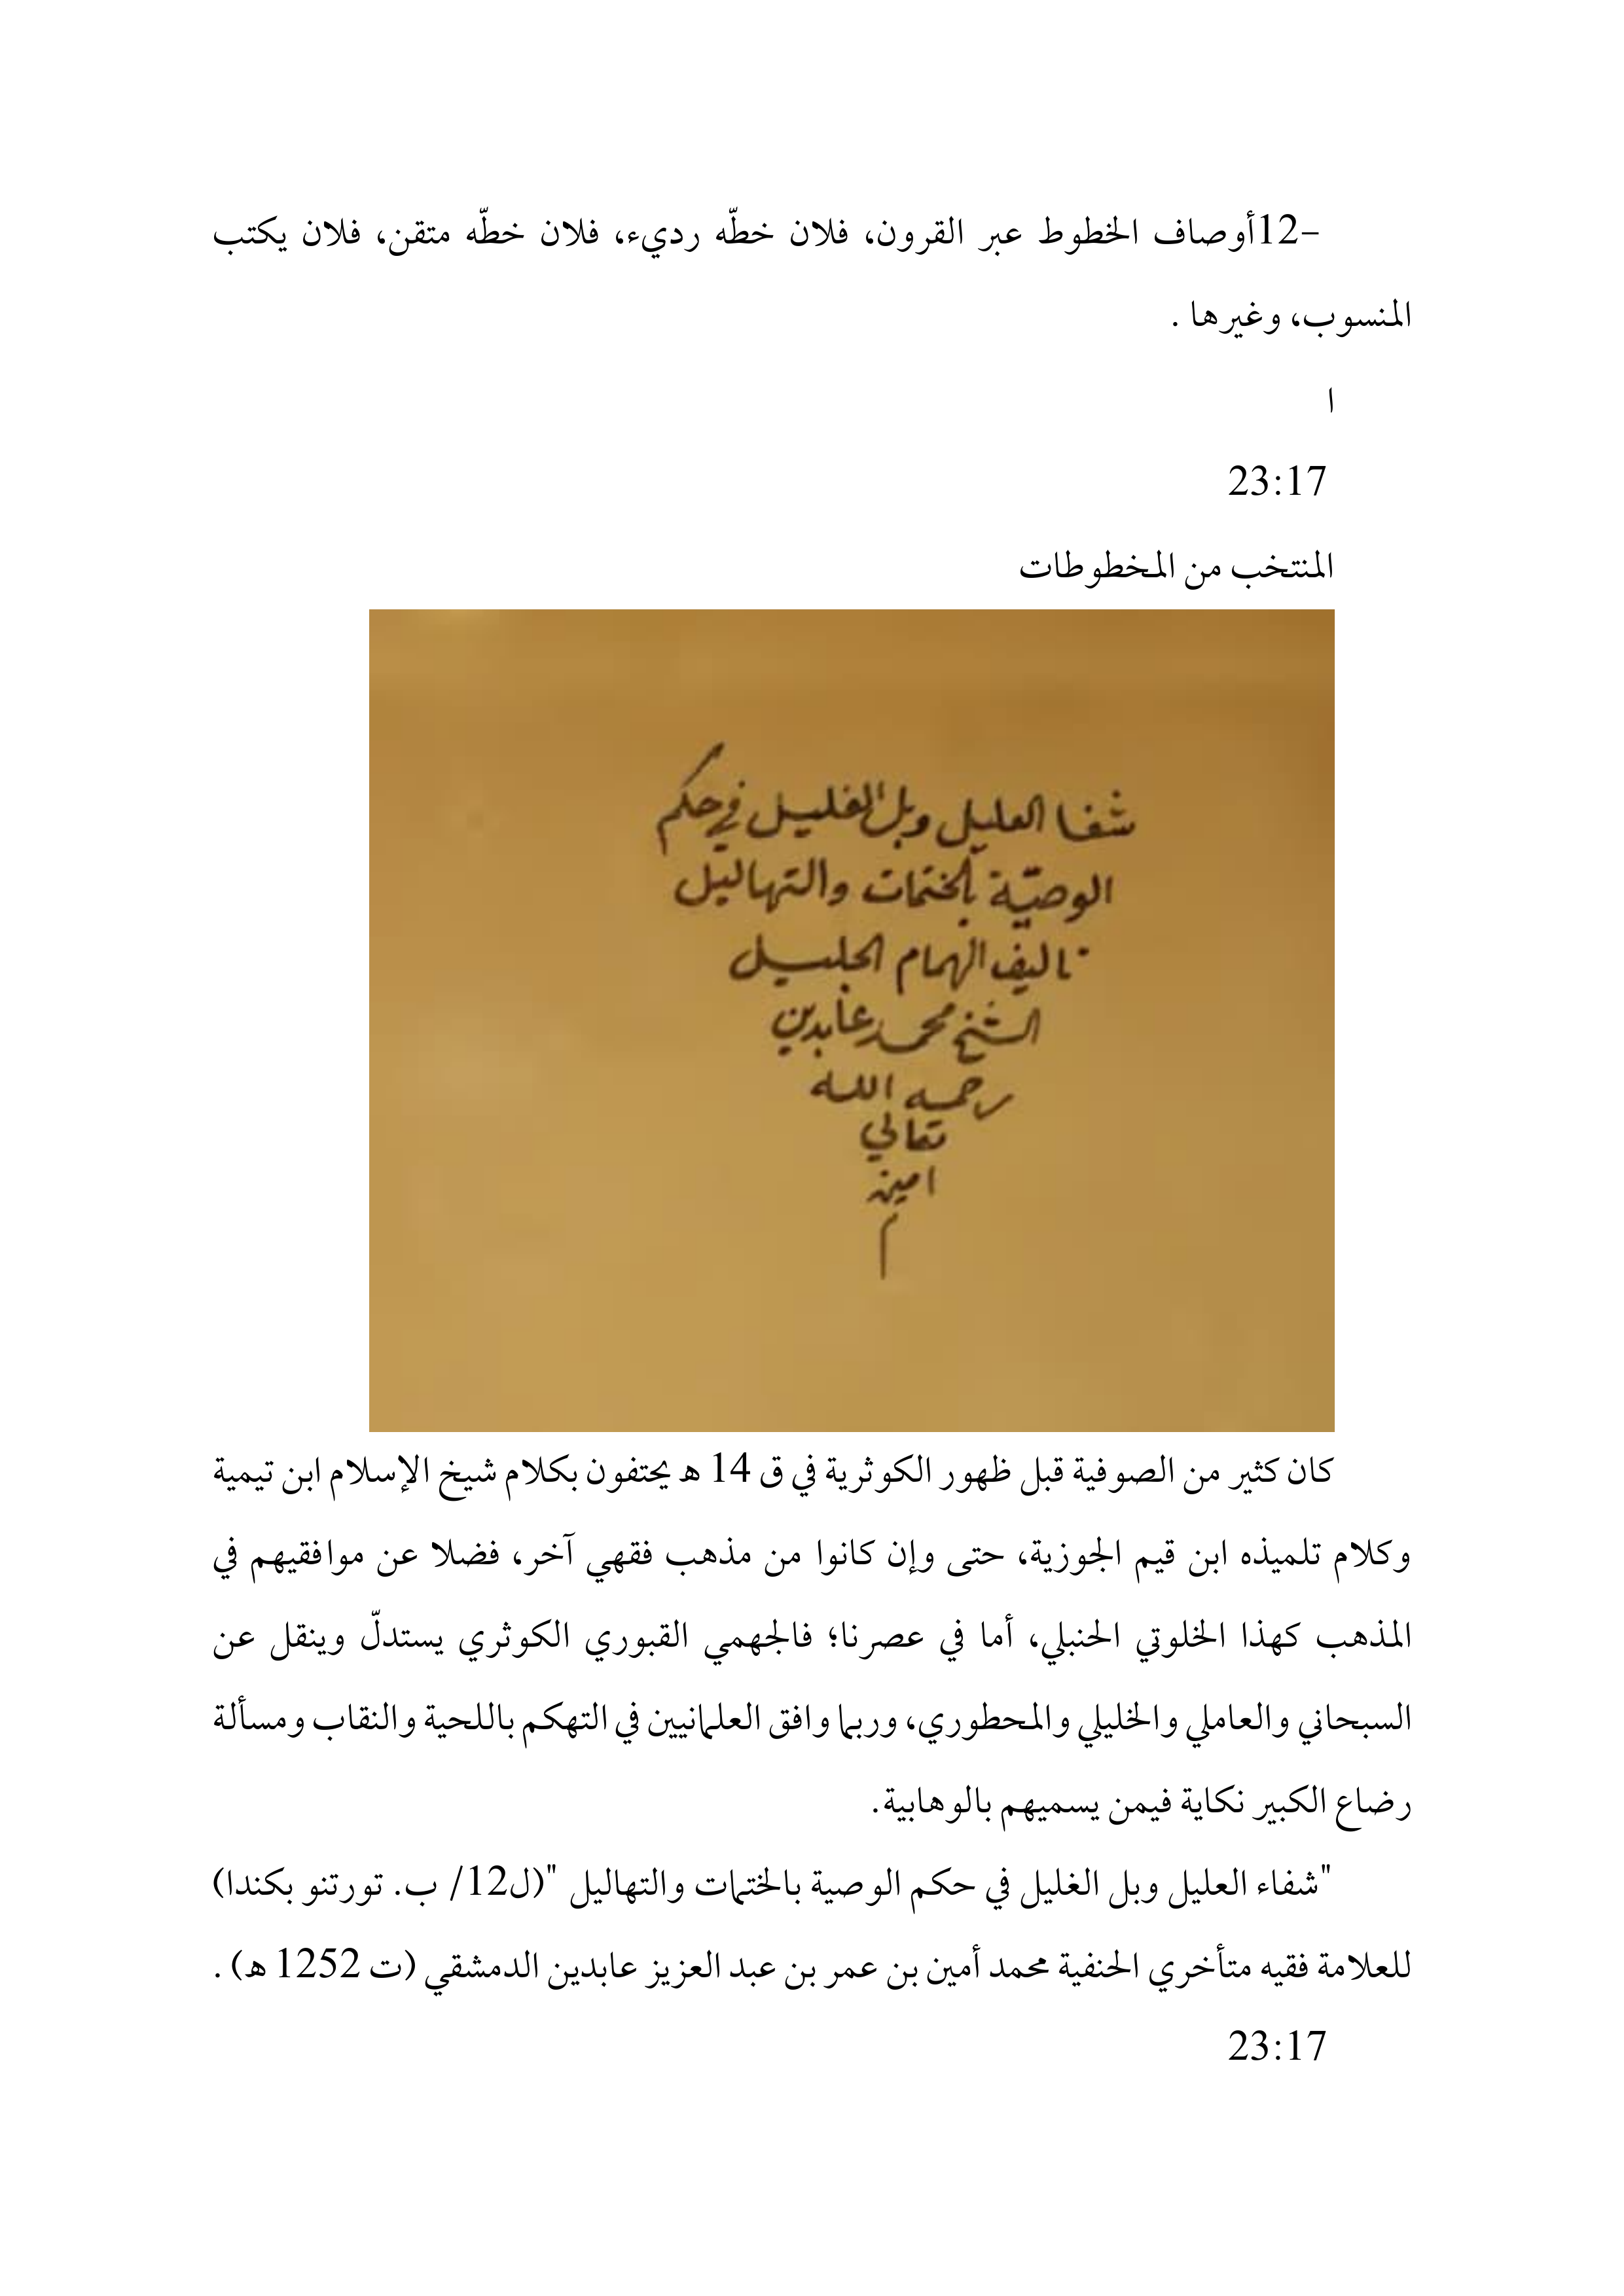 -12أوصاف الخطوط عبر القرون، فلان خطّه رديء، فلان خطّه متقن، فلان يكتب
المنسوب، وغيرها .
ا
23:17
المنتخب من المخطوطات
شفا العليل وبل الغليل في حكم
الوصيّة بالختمات والتهاليل
تاليف الهمام الجليل
الشيخ محمد عابدين
رحمه الله
تعالي
امين
م
كان كثير من الصوفية قبل ظهور الكوثرية في ق 14 ه يحتفون بكلام شيخ الإسلام ابن تيمية
وكلام تلميذه ابن قيم الجوزية، حتى وإن كانوا من مذهب فقهي آخر، فضلا عن موافقيهم في
المذهب كهذا الخلوتي الحنبلي، أما في عصرنا؛ فالجهمي القبوري الكوثري يستدلّ وينقل عن
السبحاني والعاملي والخليلي والمحطوري، وربما وافق العلمانيين في التهكم باللحية والنقاب ومسألة
رضاع الكبير نكاية فيمن يسميهم بالوهابية.
"شفاء العليل وبل الغليل في حكم الوصية بالختمات والتهاليل "(ل12/ ب. تورتنو بكندا)
للعلامة فقيه متأخري الحنفية محمد أمين بن عمر بن عبد العزيز عابدين الدمشقي (ت 1252 ه) .
23:17